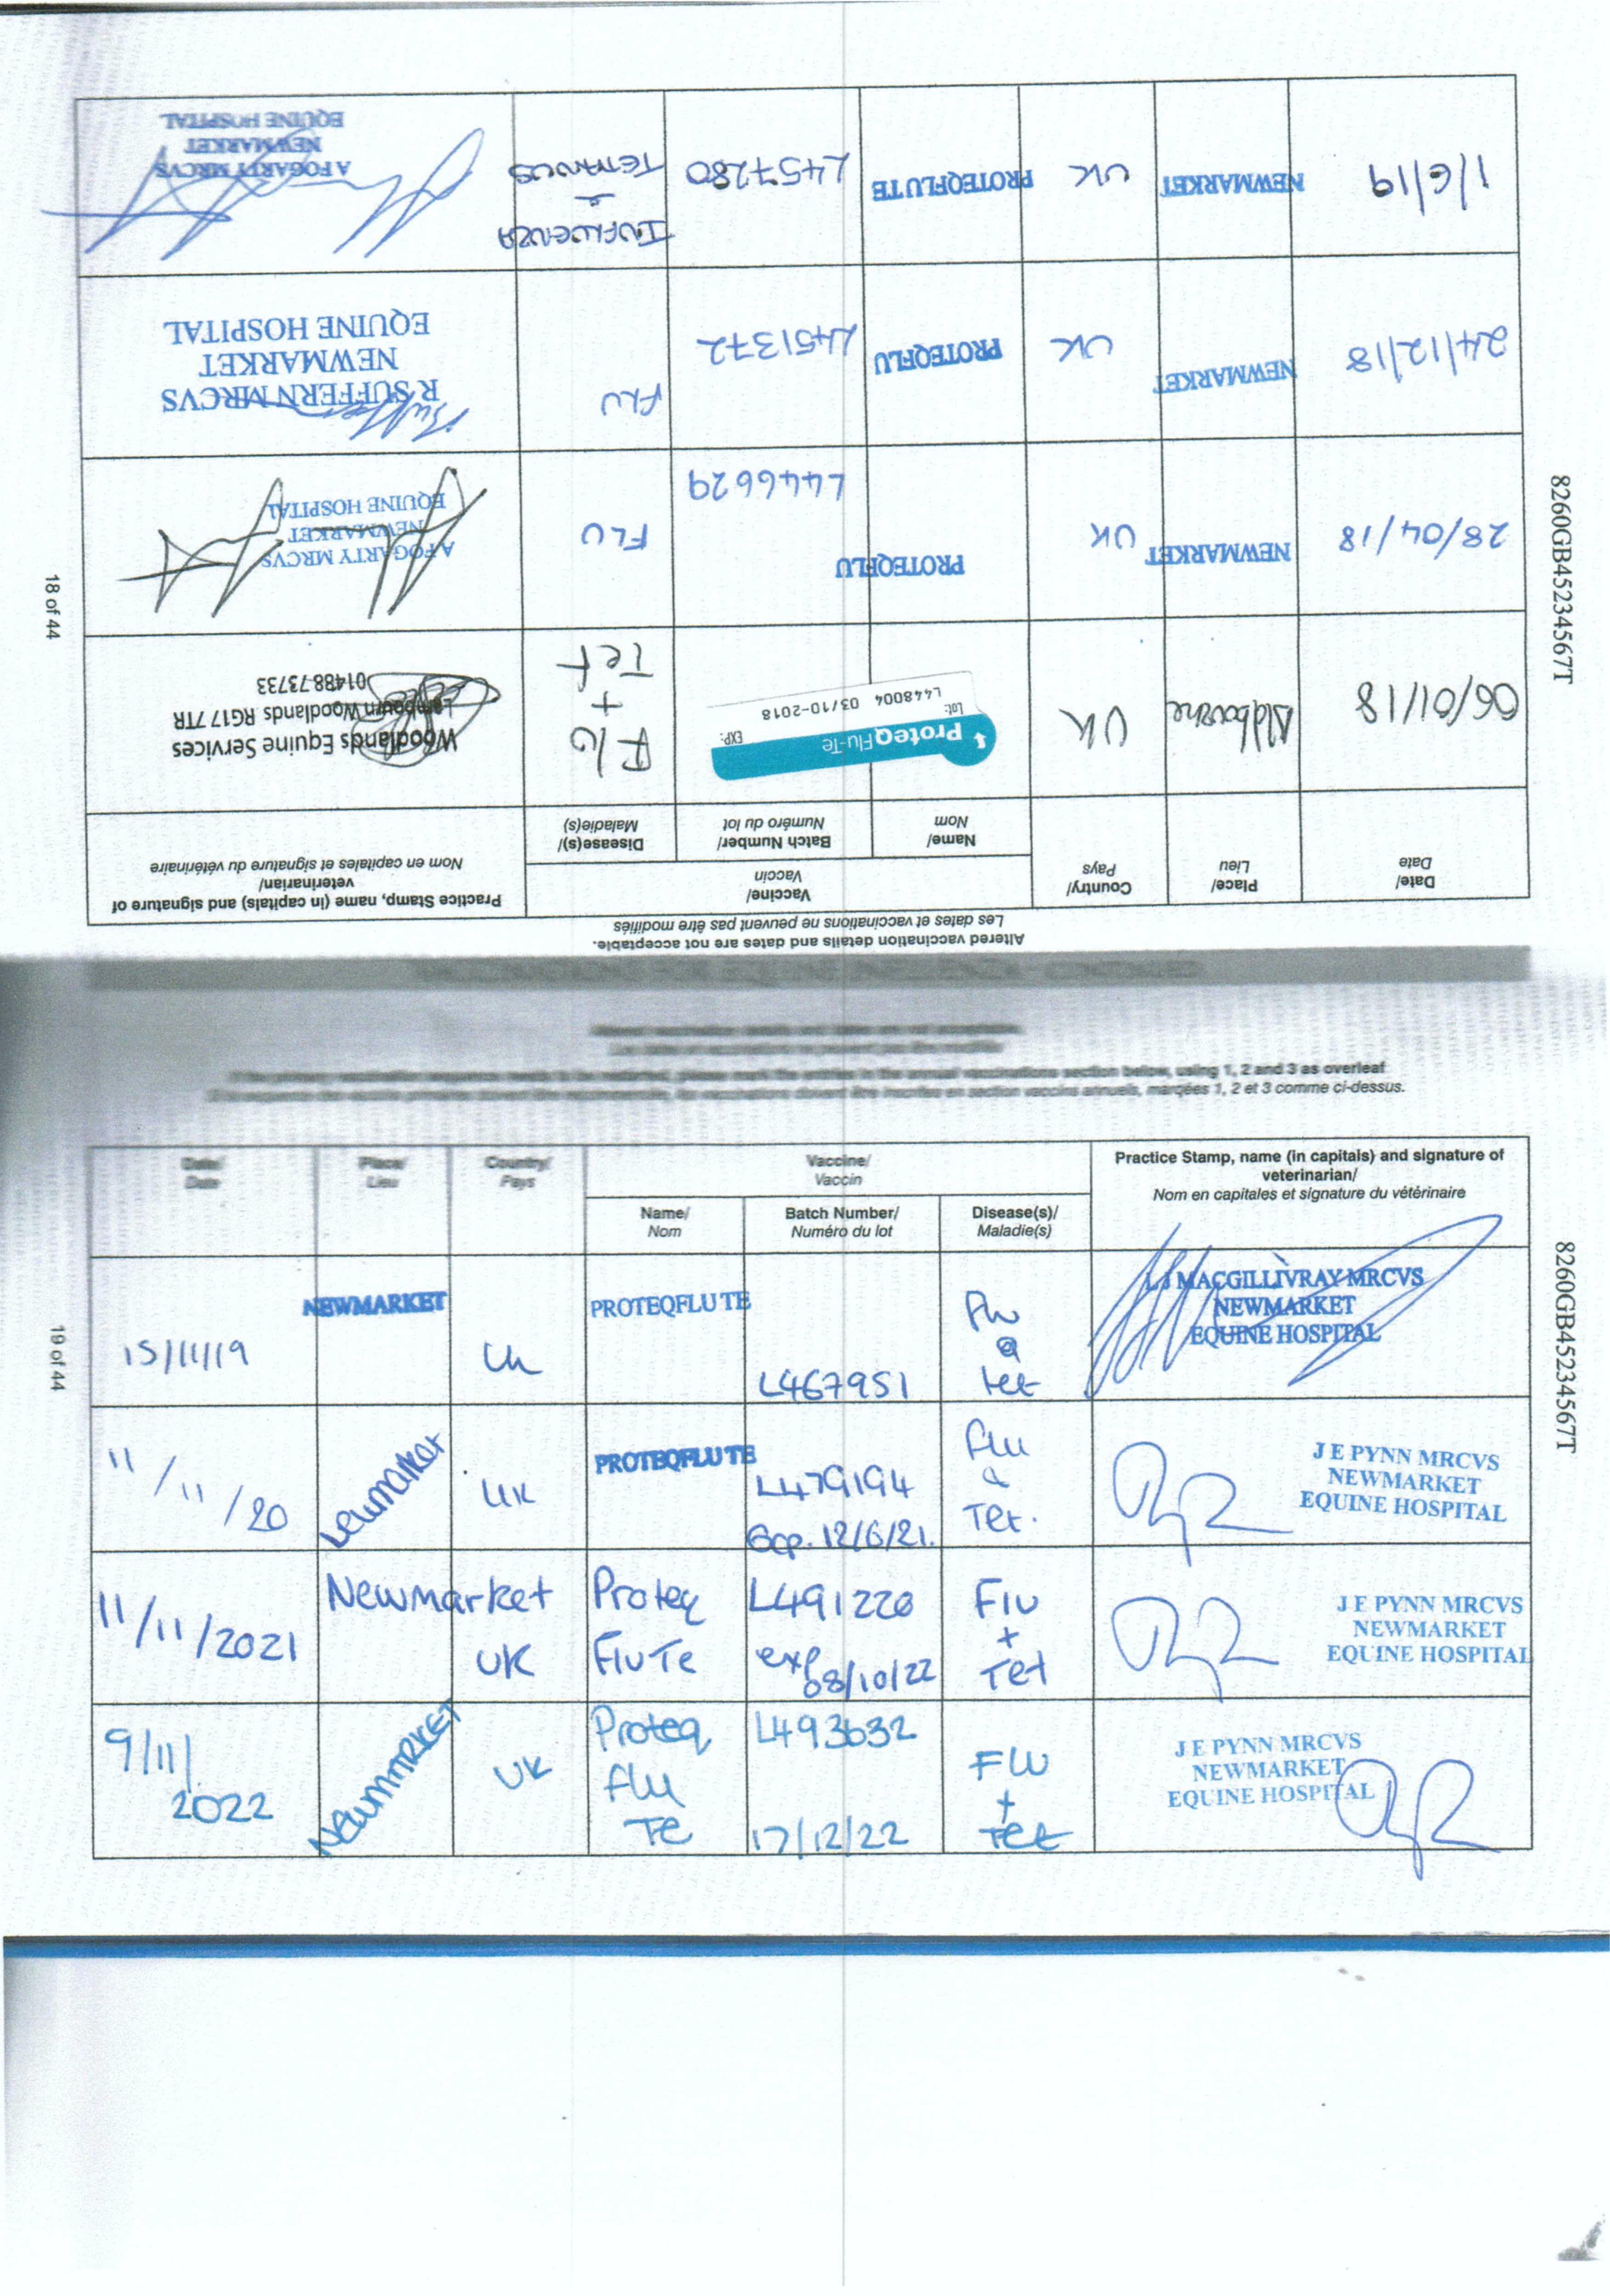 VACCINATIONS FOR EQUINE INFLUENZA - CONTINUED
Altered vaccination details and dates are not acceptable.
Les dates et vaccinations ne peuvent pas être modifiés
Date/ Date
Place/ Lieu
Country/ Pays
Vaccine/ Vaccin
Name/ Nom
Batch Number/ Numéro du lot
Disease(s)/ Maladie(s)
Practice Stamp, name (in capitals) and signature of veterinarian/
Nom en capitales et signature du vétérinaire
06/01/18 Aldbourne UK ProteqFlu-Te Lot: L448004 EXP: 03/10-2018 Flu + Tet Woodlands Equine Services
Lambourn Woodlands RG17 7TR
01488 73733
28/04/18 NEWMARKET UK PROTEQFLU L446629 FLU A FOGARTY MRCVS
NEWMARKET
EQUINE HOSPITAL
24/12/18 NEWMARKET UK PROTEQFLU L451372 FLU R SUFFERN MRCVS
NEWMARKET
EQUINE HOSPITAL
1/6/19 NEWMARKET UK PROTEQFLUTE L457280 INFLUENZA & TETANUS A FOGARTY MRCVS
NEWMARKET
EQUINE HOSPITAL
8260GB45234567T
18 of 44
Altered vaccination details and dates are not acceptable.
Les dates et vaccinations ne peuvent pas être modifiés
below, using 1, 2 and 3 as overleaf
en section vaccins annuels, marqées 1, 2 et 3 comme ci-dessus.
Date/ Date
Place/ Lieu
Country/ Pays
Vaccine/ Vaccin
Name/ Nom
Batch Number/ Numéro du lot
Disease(s)/ Maladie(s)
Practice Stamp, name (in capitals) and signature of veterinarian/
Nom en capitales et signature du vétérinaire
15/11/19 NEWMARKET UK PROTEQFLU TE L467951 Flu & tet L J MACGILLIVRAY MRCVS
NEWMARKET
EQUINE HOSPITAL
11/11/20 Newmarket UK PROTEQFLU TE L479194 Exp. 12/6/21. Flu & Tet. J E PYNN MRCVS
NEWMARKET
EQUINE HOSPITAL
11/11/2021 Newmarket UK Proteq Flu Te L491220 exp 08/10/22 Flu + Tet J E PYNN MRCVS
NEWMARKET
EQUINE HOSPITAL
9/11/2022 NEWMARKET UK Proteq flu Te L493632 17/12/22 FLU + Tet J E PYNN MRCVS
NEWMARKET
EQUINE HOSPITAL
8260GB45234567T
19 of 44